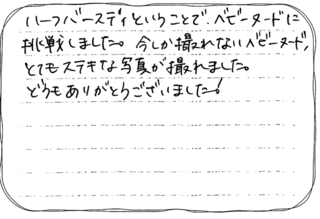 ハーフバースディということで、ベビーヌードに
挑戦しました。今しか撮れないベビーヌード、
とてもステキな写真が撮れました。
どうもありがとうございました!